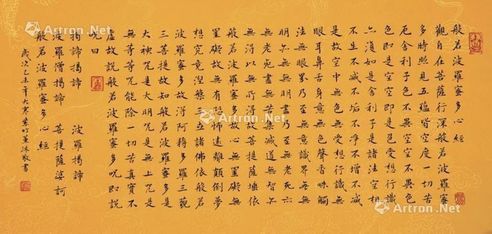 般若波羅蜜多心經
觀自在菩薩行深般若波羅蜜
多時照見五蘊皆空度一切苦
厄舍利子色不異空空不異色
色即是空空即是色受想行識
亦復如是舍利子是諸法空相
不生不滅不垢不淨不增不減
是故空中無色無受想行識無
眼耳鼻舌身意無色聲香味觸
法無眼界乃至無意識界無無
明亦無無明盡乃至無老死亦
無老死盡無苦集滅道無智亦
無得以無所得故菩提薩埵依
般若波羅蜜多故心無罣礙無
罣礙故無有恐怖遠離顛倒夢
想究竟涅槃三世諸佛依般若
波羅蜜多故得阿耨多羅三藐
三菩提故知般若波羅蜜多是
大神咒是大明咒是無上咒是
無等等咒能除一切苦真實不
虛故說般若波羅蜜多咒即說
咒曰
揭諦揭諦 波羅揭諦
波羅僧揭諦 菩提薩婆訶
般若波羅蜜多心經
歲次己未年大寒 敬書